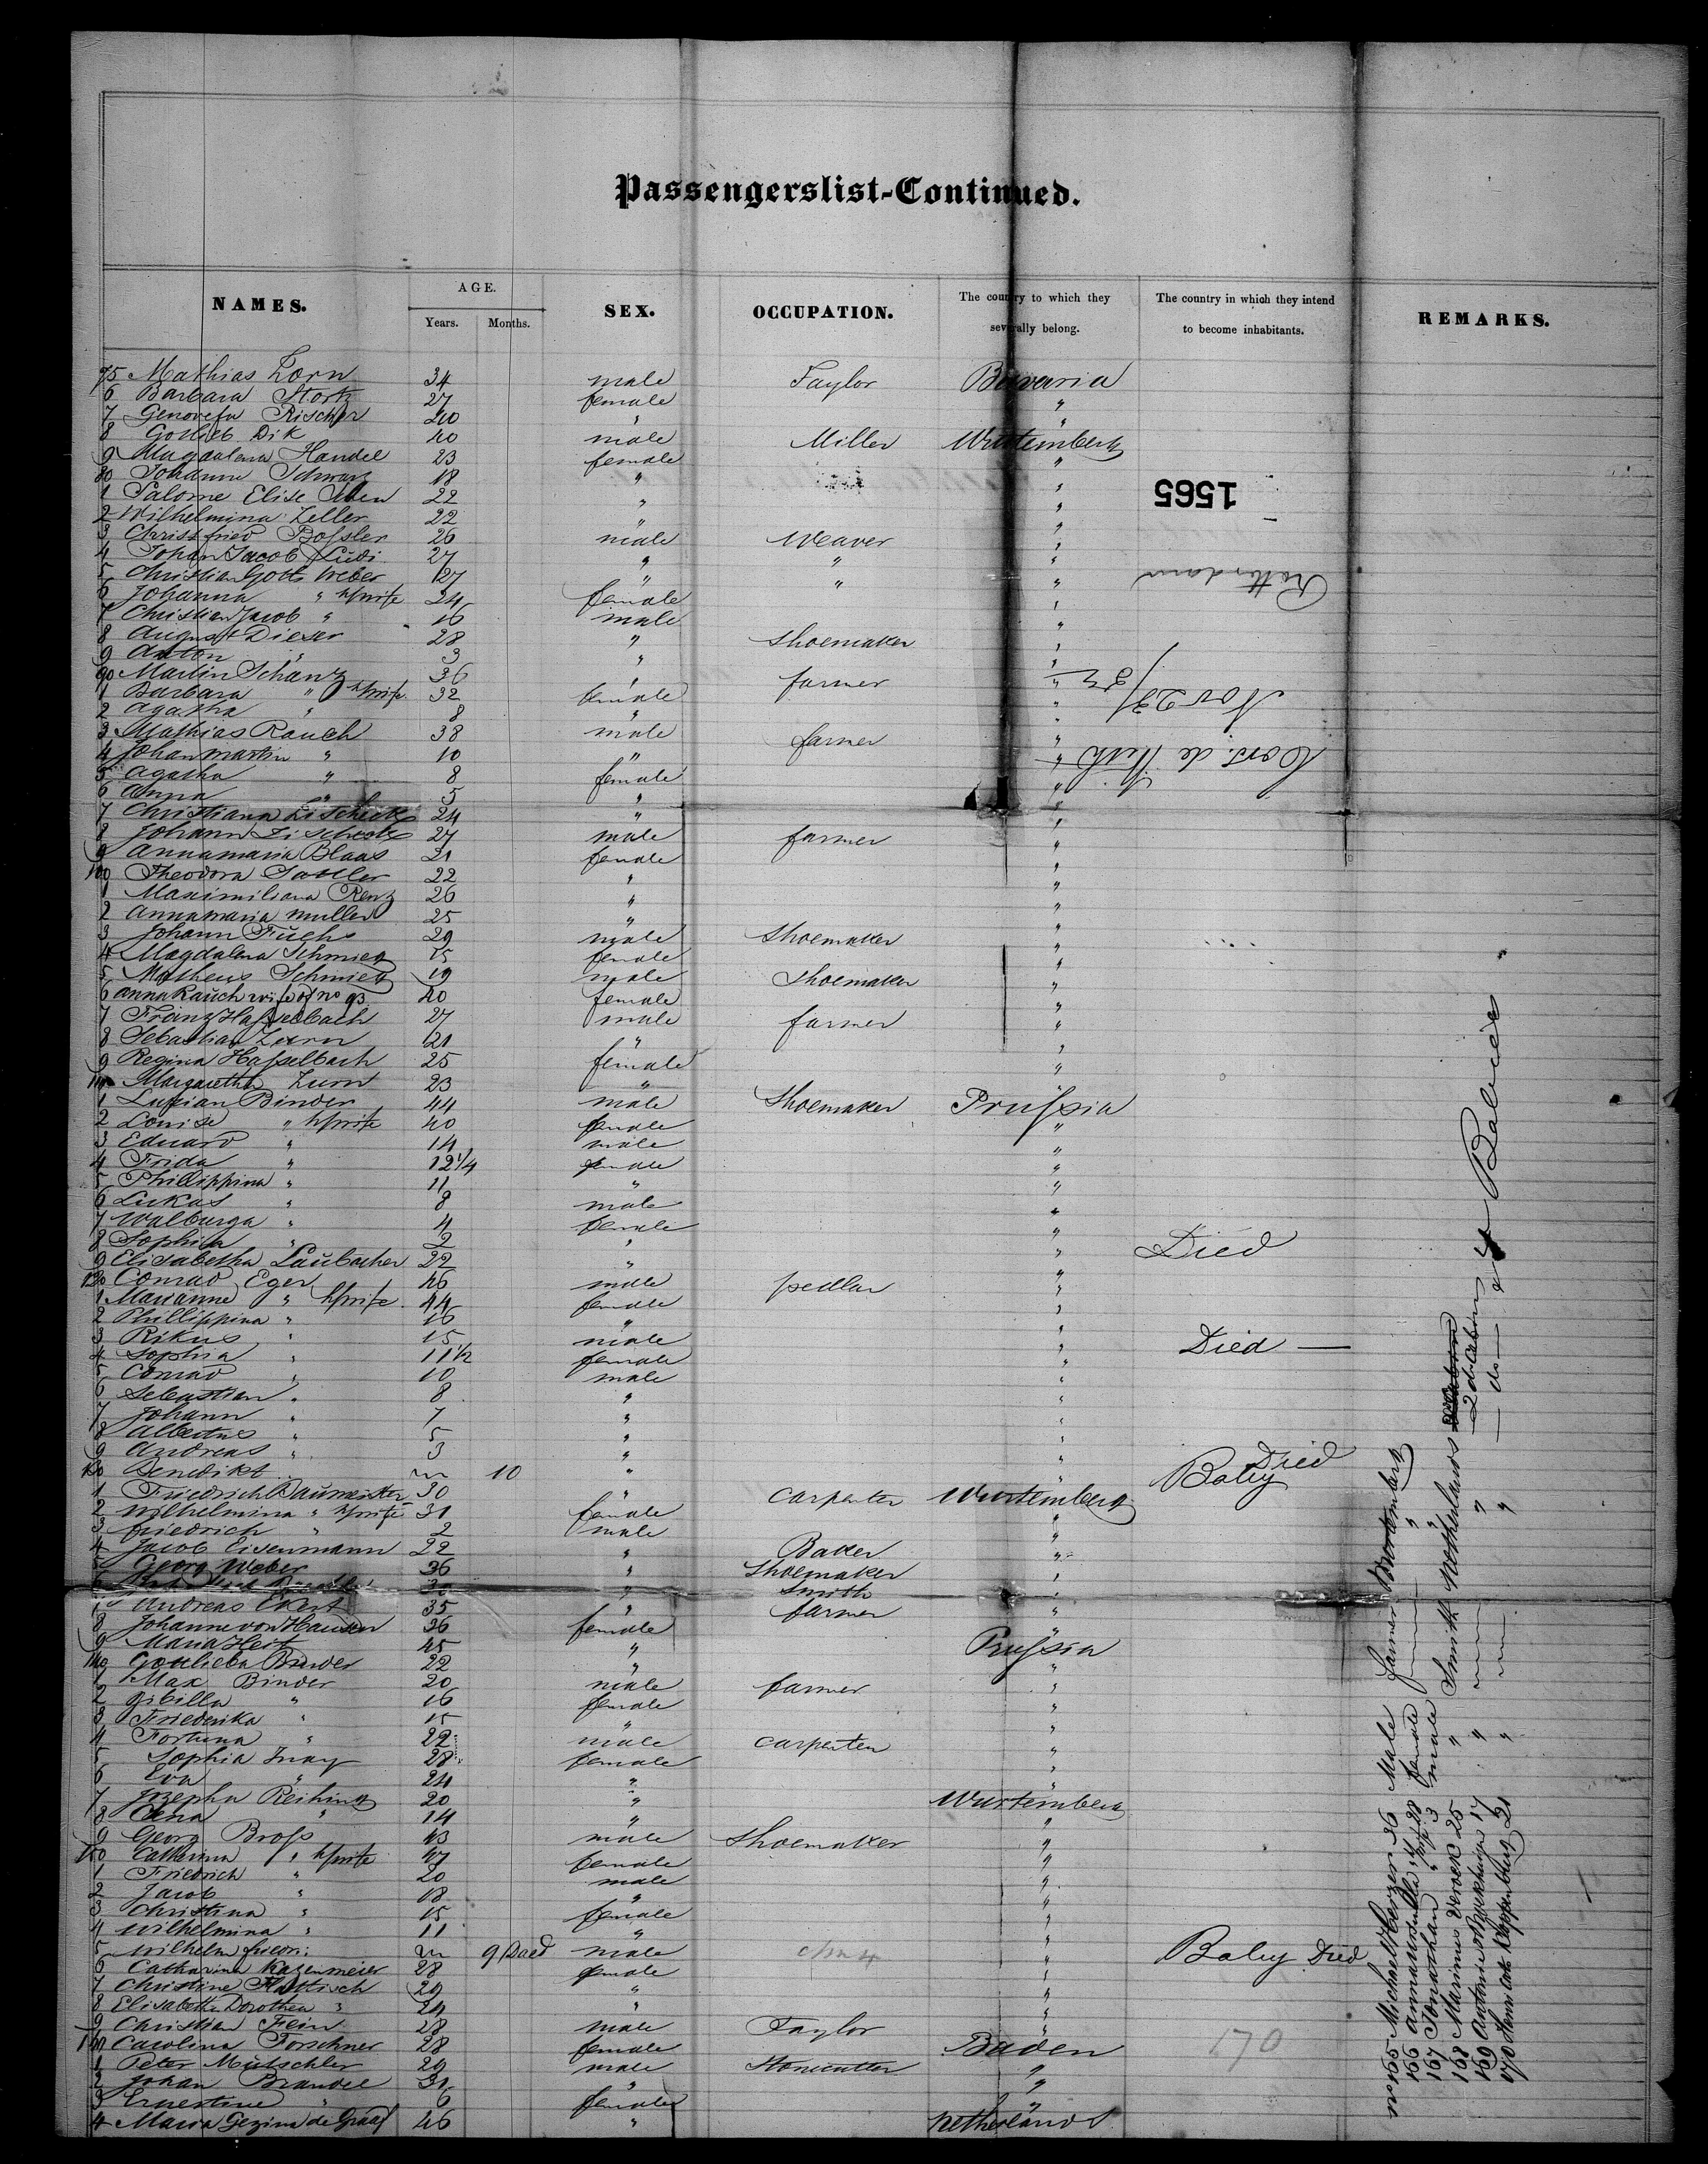 Passengerslist-Continued.
NAMES. AGE. SEX. OCCUPATION. The country to which they severally belong. The country in which they intend to become inhabitants. REMARKS.
Years. Months.
75 Mathias Zorn 34 male Taylor Bavaria
6 Barbara Stortz 27 female "
7 Genovefa Rischer 20 " "
8 Gottlieb Dik 40 male Miller Wurtemberg
9 Magdalena Handel 23 female "
80 Johanna Schwarz 18 " "
1 Salome Elise 22 " "
2 Wilhelmina Zeller 22 " "
3 Christfried Bossler 26 male Weaver "
4 Johan Jacob Ludi 27 " " "
5 Christian Gottb Weber 27 " " "
6 Johanna " h/wife 24 female "
7 Christian Jacob " 16 male "
8 August Dieser 28 " Shoemaker "
9 Anton " 3 " "
90 Martin Schanz 36 " farmer "
1 Barbara " h/wife 32 female "
2 Agatha " 8 " "
3 Mathias Rauch 38 male farmer "
4 Johan Martin " 10 " "
5 Agatha " 8 female "
6 Anna " 5 " "
7 Christiana 24 " "
8 Johann 27 male farmer "
9 Annamaria Blaas 21 female "
100 Theodora Sattler 22 " "
1 Maximiliana Renz 26 " "
2 Annamaria Muller 25 " "
3 Johann Fuchs 29 male Shoemaker "
4 Magdalena Schmieg 25 female "
5 Matheus Schmieg 19 male Shoemaker "
6 Anna Rauch wife of no 93 40 female "
7 Franz Hasselbach 27 male farmer "
8 Sebastian Zurn 21 " "
9 Regina Hasselbach 25 female "
110 Margaretha Zurn 23 " "
1 Luzian Binder 44 male Shoemaker Prussia
2 Louise " h/wife 40 female "
3 Eduard " 14 male "
4 Frida " 12 1/4 female "
5 Phillippina " 11 " "
6 Lukas " 8 male "
7 Walburga " 4 female "
8 Sophia " 2 " " Died
9 Elisabetha Laubacher 22 " "
120 Conrad Eger 46 male pedlar "
1 Marianne " h/wife 44 female "
2 Phillippina " 16 " "
3 Rikus " 15 male " Died
4 Sophia " 11 1/2 female "
5 Conrad " 10 male "
6 Sebastian " 8 " "
7 Johann " 7 " "
8 Albertus " 5 " "
9 Andreas " 3 " "
130 Benedikt " 10 " " Baby Died
1 Friedrich Baumeister 30 " Carpenter Wurtemberg
2 Wilhelmina " h/wife 31 female "
3 friedrich " 2 male "
4 Jacob Eisenmann 22 " Baker "
5 Georg Weber 36 " Shoemaker "
6 30 " Smith "
7 Andreas Ekert 35 " farmer "
8 Johanne von Hausen 36 female "
9 Maria Heit 45 " Prussia
140 Gottlieba Binder 22 " "
1 Max Binder 20 male farmer "
2 Sibilla " 16 female "
3 Friederika " 15 " "
4 Fortuna " 22 male Carpenter "
5 Sophia 28 female "
6 Eva " 24 " "
7 Jozepha Reihing 20 " Wurtemberg
8 " 14 " "
9 Georg Bross 43 male Shoemaker "
150 Catharina " h/wife 47 female "
1 Friedrich " 20 male "
2 Jacob " 18 " "
3 Christina " 15 female "
4 Wilhelmina " 11 " "
5 Wilhelm friedr: 9 male " Baby Died
6 Catharina Kazenmeier 28 female "
7 Christine 29 " "
8 Elisabetha Dorothea " 24 " "
9 Christian Fein 28 male Taylor "
160 Carolina Forschner 28 female Baden
1 Peter Mutschler 29 male Stonecutter "
2 Johan Brandel 31 " "
3 Ernestine " 6 female "
4 Maria Gezina de Graaf 46 " Netherlands
170
1565
Rotterdam
Nov 23/
Corn. de With
no 165 Michael Herzer 36 Male farmer Wurtemberg
166 28 female "
167 Jonathan " 3 male "
168 Marinus Vervek 25 " Smith Netherlands 2d Cabin
169 17 " " do
170 21 " "